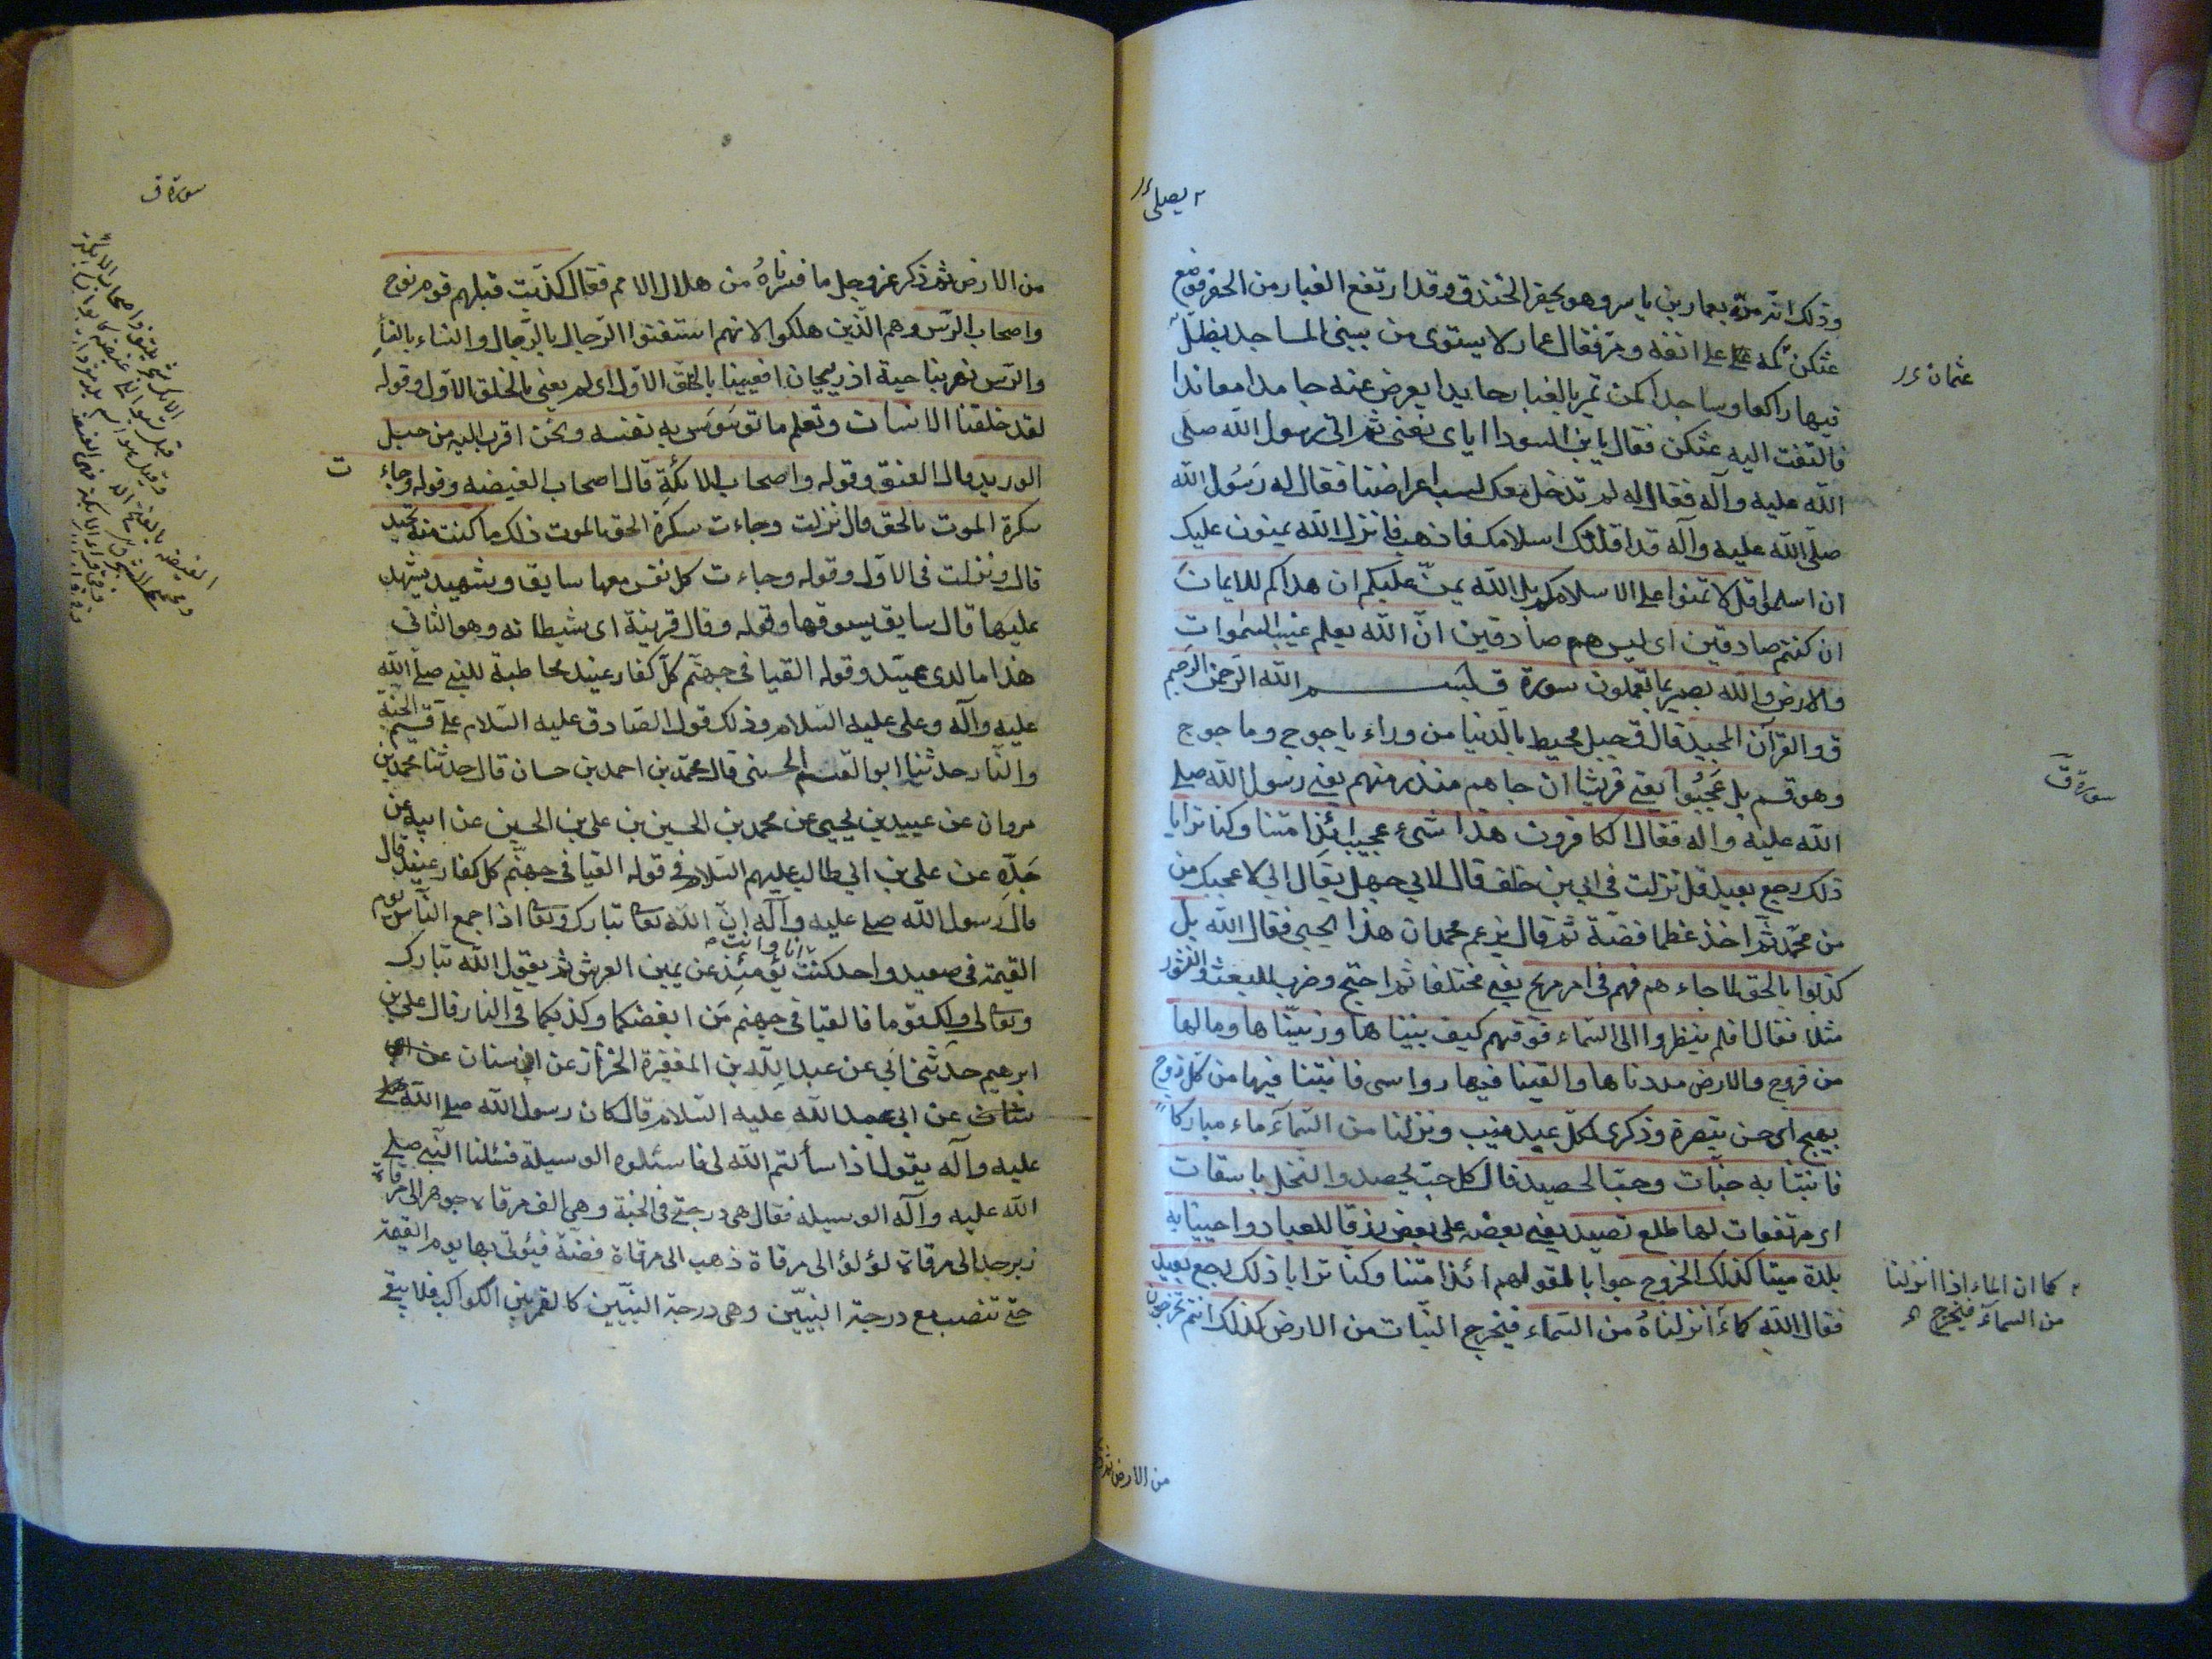 یصلی
وذلک انه مرّ بعمار بن یاسر وهو یحفر الخندق وقد ارتفع الغبار من الحفر فوضع
عثکن کمه علی انفه ومرّ فقال عمار لا یستوی من یبنی المساجد یظلّ
فیها راکعا وساجدا کمن یمر بالغبار حایدا یعرض عنه جامدا معاندا
فالتفت الیه عثکن فقال یابن السودا ایای تعنی ثم اتی رسول الله صلی
الله علیه وآله فقال له لم ندخل معک لسب اعراضنا فقال له رَسُول الله
صلّی الله علیه وآله قد اقلتک اسلامک فاذهب فانزل الله یمنون علیک
ان اسلموا قل لا تمنوا علی الاسلامکم بل الله یمنّ علیکم ان هداکم للایمان
ان کنتم صادقین ای لیس هم صادقین انّ الله یعلم غیب السّموات
والارض والله بصیر بما تعملون سورة ق بســـم الله الرّحمن الرّحیم
ق والقرآن المجید قال ق جبل محیط بالدّنیا من وراء یاجوج وماجوج
وهو قسم بل عَجِبُوا یعنی قریشا ان جاهم منذر منهم یعنی رسول الله صلی
الله علیه واله فقال الکافرون هذا شیء عجیب ائذا متنا وکنا ترابا
ذلک رجع بعید قال نزلت فی ابی بن خلف قال لابی جهل تعال الی لاعجبک من
من محمّد ثم اخذ عظما ففتّه ثم قال یزعم محمد ان هذا یحیی فقال الله بل
کذبوا بالحق لما جاءهم فهم فی امر مریج یعنی مختلف ثم احتج وضرب للبعث والنشور
مثلا فقال افلم ینظروا الی السّماء فوقهم کیف بنیناها وزینّاها ومالها
من فروج والارض مددناها والقینا فیها رواسی وانبتنا فیها من کل زوج
بهیج ای حسن تبصرة وذکری لکلّ عبد منیب ونزلنا من السّمآء ماء مبارکاً
فانبتنا به جنّات وحبّ الحصید قال کل حبّ یحصد والنخل باسقات
ای مرتفعات لها طلع نضید یعنی بعضه علی بعض رزقا للعباد واحیینا به
بلدة میتا کذلک الخروج جوابا لقولهم ائذا متنا وکنا ترابا ذلک رجع بعید
فقال الله کماء انزلناهُ من السّماء فیخرج النّبات من الارض کذلک انتم تخرجون
عثمان
سورة ق
کما ان الماء اذا انزلنا
من السمآء فیخرج
من الارض ثم ذکر
سورة ق
من الارض ثم ذکر عز وجل ما فسّرناهُ من هلاک الامم فقال کذّبت قبلهم قوم نوح
واصحاب الرّس وهم الّذین هلکوا لانهم استغنوا الرّجال بالرّجال والنساء بالنساء
والرّس نهر بناحیة اذربیجان افعیینا بالخلق الاوّل ای لم یعنی بالخلق الاوّل وقوله
لقد خلقنا الانسان ونعلم ما توسَوس به نفسه ونحن اقرب الیه من حبل
الورید قال العنق وقوله واصحاب الایکة قال اصحاب الغیضه وقوله وجاء
ت
سکرة الموت بالحق قال نزلت وجاءت سکرة الحق بالموت ذلک ما کنت منه تحید
قال ونزلت فی الاوّل وقوله وجاءت کل نفس معها سایق وشهید یشهد
علیها قال سایق یسوقها وقوله وقال قرینه ای شیطانه وهو الثانی
هذا ما لدی عتید وقوله القیا فی جهنّم کلّ کفار عنید مخاطبة للنبی صلی الله
علیه وآله وعلی علیه السّلام وذلک قول الصّادق علیه السّلام علی قسیم الجنّة
والنّار حدثنا ابو القسم الحسنی قال محمّد بن احمد بن حسان قال حدثنا محمّد بن
مروان عن عبید بن یحیی عن محمد بن الحسین بن علی بن الحسین عن ابیه عن
جَدّه عن علی بن ابی طالب علیهم السّلام فی قوله القیا فی جهنّم کل کفار عنید قال
قال رسول الله صلی علیه وآله انّ الله تعالی تبارک وتعالی اذا جمع النّاس یوم
القیمة فی صعید واحد کنت انا وانت یَومئِذٍ عن یمین العرش ثم یقول الله تبارک
وتعالی لی ولک قوما فالقیا فی جهنم مَن ابغضکما وکذبکما فی النار قال علی بن
ابرهیم حدّثنی ابی عن عبد الله بن المغیرة الخزاز عن ابن سنان عن
سنان عن ابی عبد الله علیه السّلام قال کان رسول الله صلی الله
علیه وآله یقول اذا سألتم الله لی فاسئلوه الوسیلة فسئلنا النّبی صلی
الله علیه وآله الوسیله فقال هی درجتی فی الجنة وهی الف مرقاة جوهر الی مرقاة
زبرجد الی مرقاة لؤلؤ الی مرقاة ذهب الی مرقاة فضّة فیؤتی بها یوم القیمة
حتی تنصب مع درجة النبیّین وهی درجة النبیّین کالقمر بین الکواکب فلا یبقی